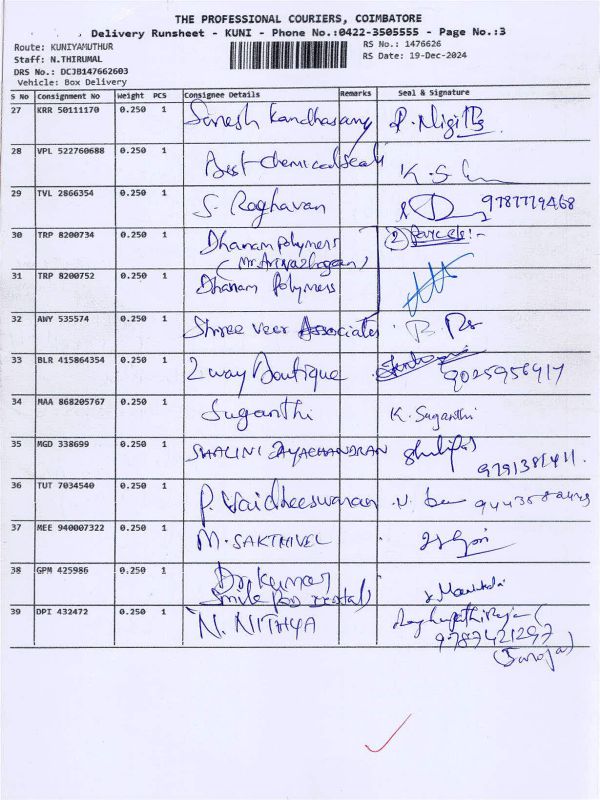 THE PROFESSIONAL COURIERS, COIMBATORE
Delivery Runsheet - KUNI - Phone No.:0422-3505555 - Page No.:3
Route: KUNIYAMUTHUR RS No.: 1476626
Staff: N.THIRUMAL RS Date: 19-Dec-2024
DRS No.: DCJB147662603
Vehicle: Box Delivery
S No Consignment No Weight PCS Consignee Details Remarks Seal & Signature
27 KRR 50111170 0.250 1 Kandhasamy
28 VPL 522760688 0.250 1 Best Chemical Seals K.S
29 TVL 2866354 0.250 1 S. Raghavan 9787779468
30 TRP 8200734 0.250 1 Dhanam Polymers (2) Parcels :-
(Mr. Arivazhagan)
31 TRP 8200752 0.250 1 Dhanam Polymers
32 ANY 535574 0.250 1 Shree Veer Associates
33 BLR 415864354 0.250 1 2 way Boutique 9025956917
34 MAA 868205767 0.250 1 Suganthi K. Suganthi
35 MGD 338699 0.250 1 SHALINI JAYACHANDRAN
36 TUT 7034540 0.250 1 P. Vaidheeswaran
37 MEE 940007322 0.250 1 M. SAKTHIVEL
38 GPM 425986 0.250 1 Dr. Kumar
39 DPI 432472 0.250 1 N. NITHYA
9787421297
(Saroja)